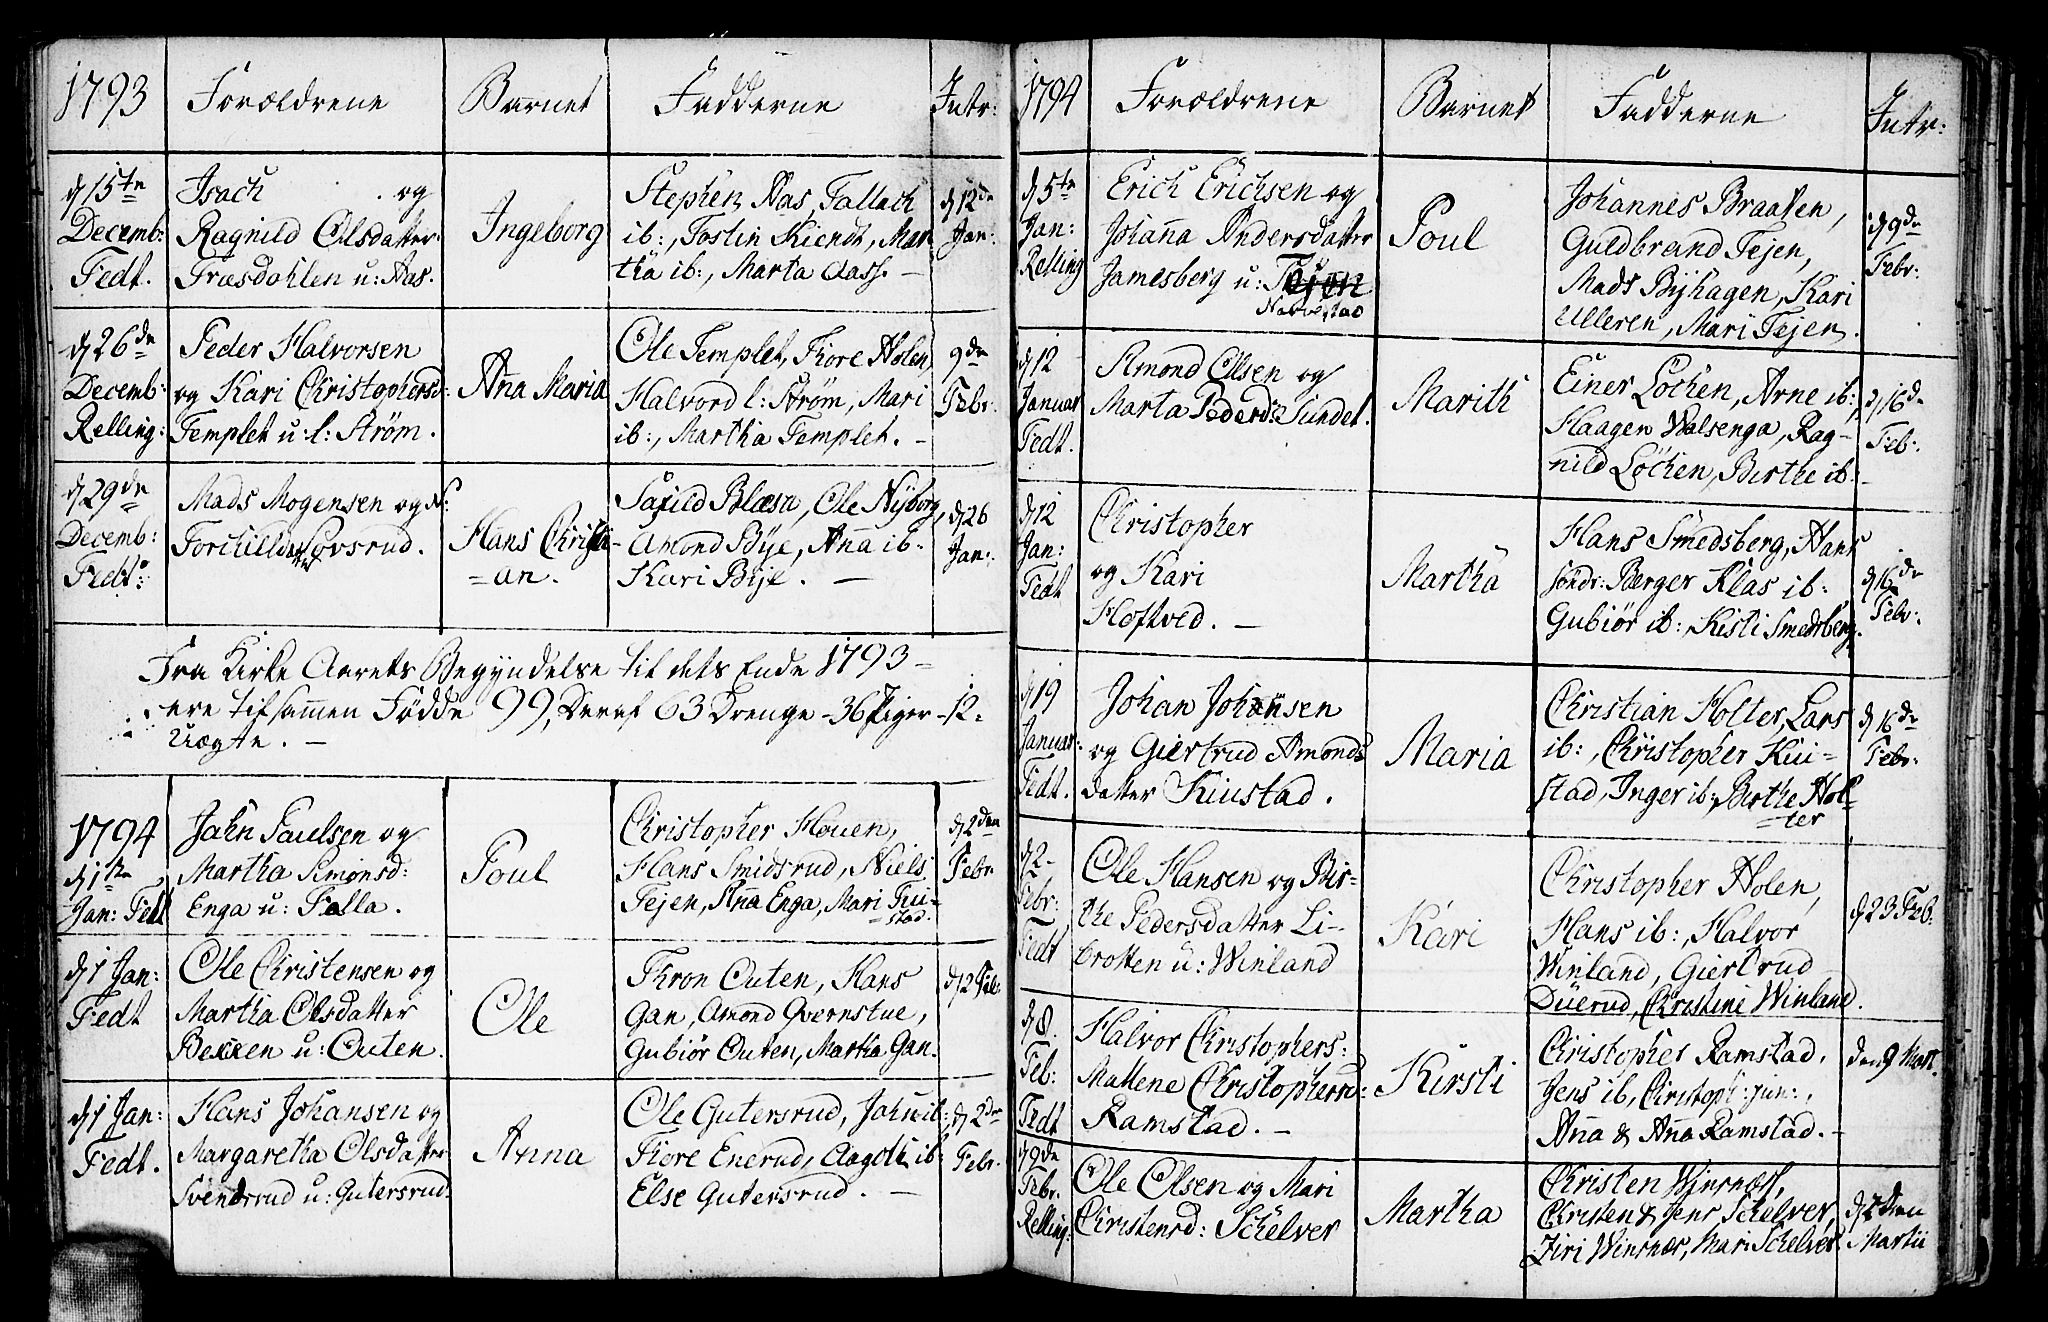 1793
Forældrene
Barnet
Fadderne
Intr:
d 15te
Decemb:
Fedt.
Isach . og
Ragnild Olsdatter
Træsdahlen u: Aas.
Ingeborg
Stephen Aas, Tallach
ib:, Tostin Kiendt, Mar
tha ib:, Marta Aass. –
d 12de
Jan:
d 26de
Decemb:
Relling:
Peder Halvorsen
og Kari Christophersd:
Templet u: l: Strøm.
Aña Maria
Ole Templet, Tiore Holen,
Halvord l: Strøm, Mari
ib:, Martha Templet. –
9de
Febr.
d 29de
Decemb:
Fedt:
Mads Mogensen og
Torchilda Lovsrud.
Hans Christi-
=an.
Blæsn, Ole Nyborg,
Amond Bye, Aña ib.
Kari Bye. –
d 26
Jan:
Fra Kirke Aarets Begyndelse til dets Ende 1793 –
ere tilsammen Fødde 99, Deraf 63 Drenge – 36 Piger – 12 =
Uægte. –
1794
d 1te
Jan: Fedt
Jahn Paulsen og
Martha Simonsd:
Enga u: Falla.
Poul
Christopher Houen,
Hans Smidsrud, Niels
Tejen, Aña Enga, Mari Kiu=
=stad.
d 2den
Febr
d 1 Jan:
Fedt
Ole Christensen og
Martha Olsdatter
Bekken u: Outen.
Ole
Thron Outen, Hans
Gan, Amond Qvernstue,
Gubiør Outen, Martha Gan.
d 2 Feb:
d 1 Jan:
Fedt.
Hans Johansen og
Margaretha Olsdatter
Svendsrud u: Gutersrud.
Anna
Ole Gutersrud, John ib:,
Tiore Enerud, Aagoth ib:
Else Gutersrud. –
d 2de
Febr.
1794
Forældrene
Barnet
Fadderne
Intr:
d 5te
Jan:
Relling
Erich Erichsen og
Johaña Andersdatter
Jamesberg u: Tejen
Navestad
Poul
Johannes Braaten,
Guldbrand Tejen,
Mads Byhagen, Kari
Ulleren, Mari Tejen.
d 9de
Febr:
d 12
Januar
Fedt.
Amond Olsen og
Marta Pedersd: Sundet.
Marith
Einer Lochen, Arne ib:,
Haagen Walsenga, Rag-
nild Lochen, Birthe ib: –
d 16d
Feb:
d 12
Jan:
Fedt
Christopher
og Kari
Hoftved. –
Martha
Hans Smedsberg, Hans
søndr: Berger Klas ib:
Gubiør ib:, Kisti Smedsberg.
d 16de
Febr:
d 19
Januar:
Fedt.
Johan Johansen
og Giertrud Amonds
datter Kiustad.
Maria
Christian Holter, Lars
ib:, Christopher Kiu-
stad, Inger ib:, Birthe Hol=
=ter
d 16de
Febr:
d 2-
Febr:
Fedt
Ole Hansen og Bir=
the Pedersdatter Li-
brotten u: Winland
Kari
Christopher Holen,
Hans ib:, Halvor
Winland, Giertrud
Duerud, Christine Winland.
d 23 Feb.
d 8.
Feb:
Fedt
Halvor Christophers:
Mallene Christophersd:
Ramstad. –
Kirsti
Christopher Ramstad,
Jens ib, Christoph: jun:,
Aña & Aña Ramstad. –
den 9 Mart.
d 9de
Febr.
Relling:
Ole Olsen og Mari
Christensd: Schelver
Martha
Christen Winsnæs,
Christen & Jens Schelver,
Siri Winsnær, Mari Schelver.
d 2den
Martii